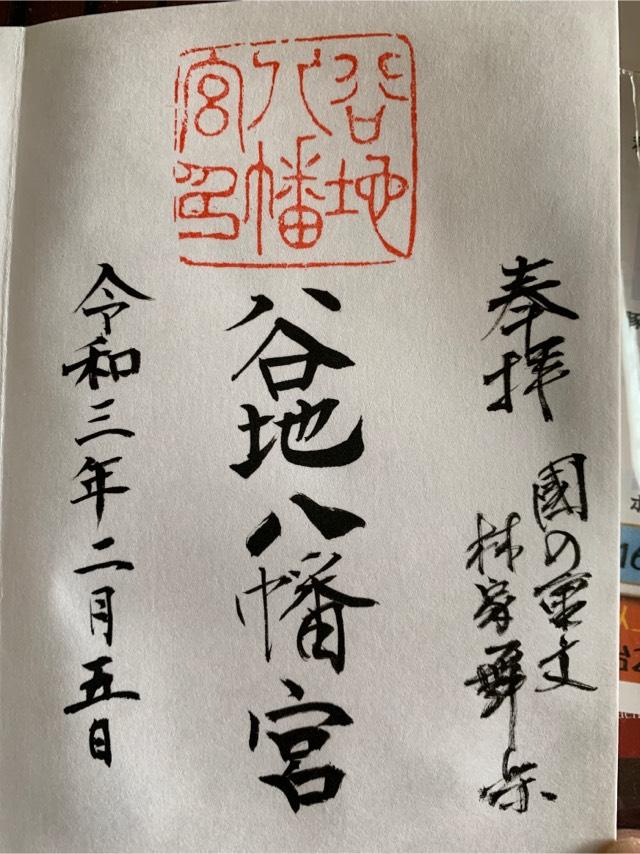 谷地
八幡
宮印
奉拝
國の重文
林家舞楽
谷地八幡宮
令和三年二月五日
16